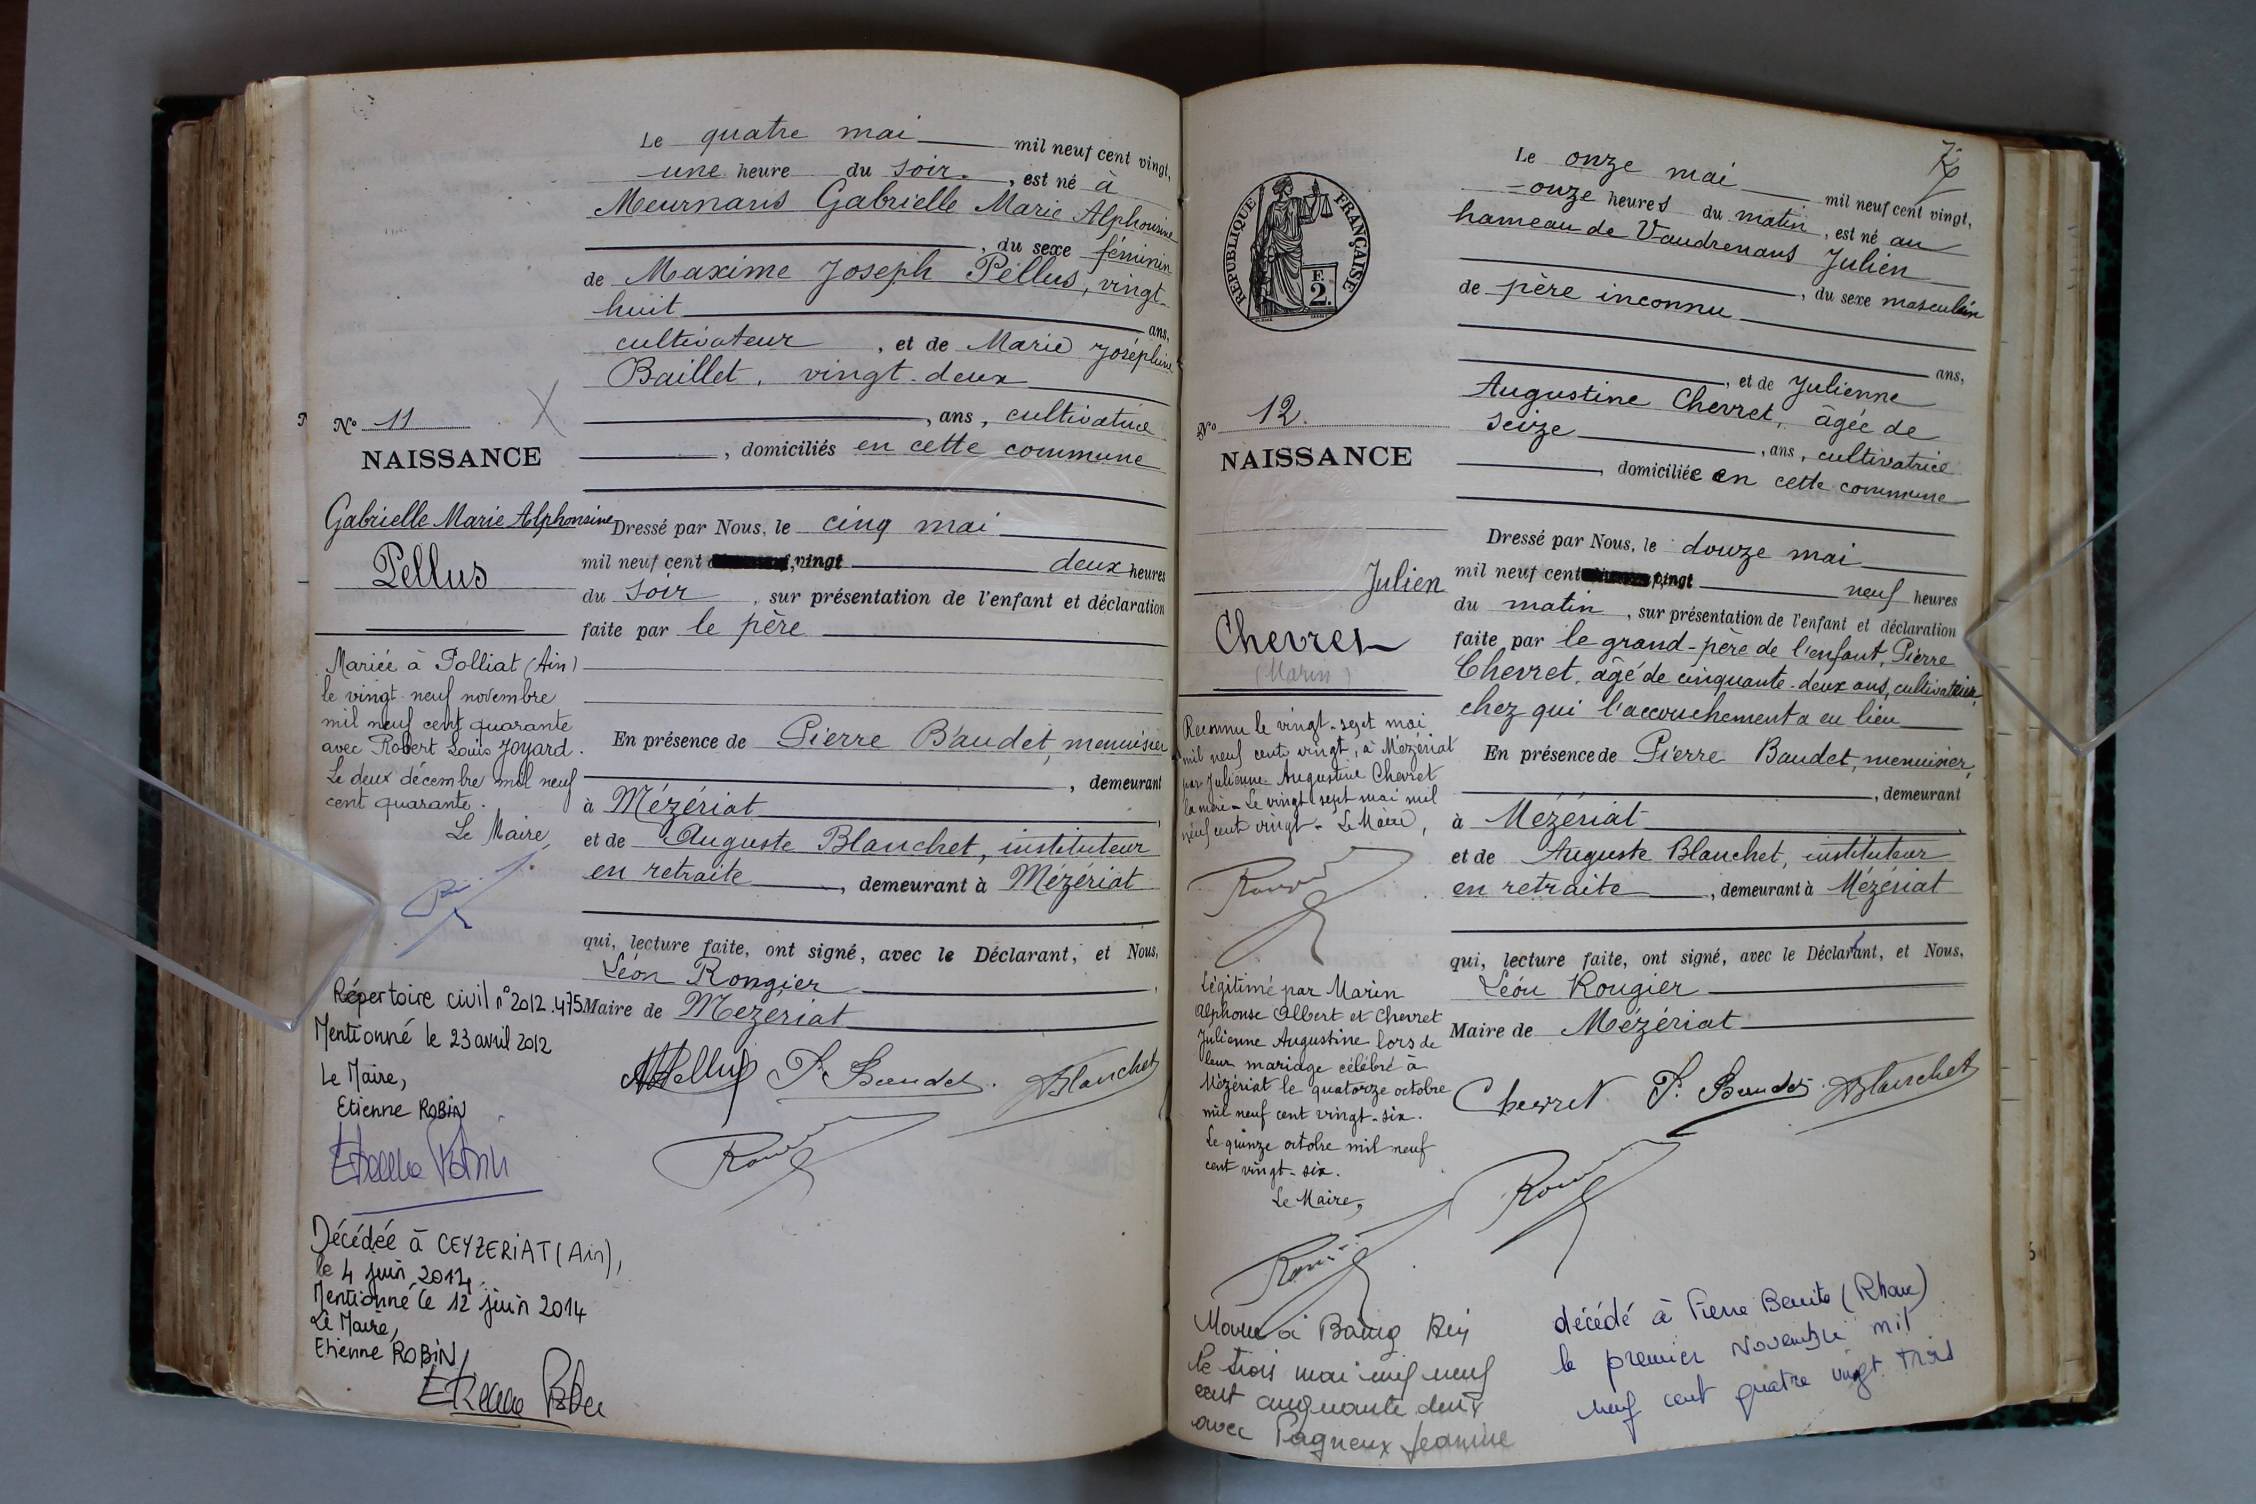 Le quatre mai mil neuf cent vingt,
une heure du soir. , est né à
Meurnans Gabrielle Marie Alphonsine
, du sexe féminin
de Maxime Joseph Pellus, vingt-
huit ans,
cultivateur , et de Marie Joséphine
Baillet, vingt-deux
, ans, cultivatrice
, domiciliés en cette commune
N° 11
NAISSANCE
Gabrielle Marie Alphonsine
Pellus
Dressé par Nous, le cinq mai
mil neuf cent vingt deux heures
du soir , sur présentation de l'enfant et déclaration
faite par le père
En présence de Pierre Baudet, menuisier
, demeurant
à Mézériat
et de Auguste Blanchet, instituteur
en retraite , demeurant à Mézériat
qui, lecture faite, ont signé, avec le Déclarant, et Nous,
Léon Rougier
Maire de Mézériat
Pellus P. Baudet. Blanchet
Mariée à Polliat (Ain)
le vingt-neuf novembre
mil neuf cent quarante
avec Robert Louis Joyard.
Le deux décembre mil neuf
cent quarante.
Le Maire,
Répertoire civil n° 2012.475
Mentionné le 23 avril 2012
Le Maire,
Etienne ROBIN
Etienne Robin
Décédée à CEYZERIAT (Ain),
le 4 juin 2014.
Mentionné le 12 juin 2014
Le Maire,
Etienne ROBIN
Etienne Robin
Le onze mai mil neuf cent vingt,
onze heures du matin , est né au
hameau de Vaudrenans Julien
, du sexe masculin
de père inconnu
ans,
, et de Julienne
Augustine Chevret, âgée de
seize , ans, cultivatrice
, domiciliée en cette commune
RÉPUBLIQUE FRANÇAISE
F.
2.
N° 12.
NAISSANCE
Julien
Chevret
(Marin)
Dressé par Nous, le douze mai
mil neuf cent vingt neuf heures
du matin , sur présentation de l'enfant et déclaration
faite par le grand-père de l'enfant, Pierre
Chevret, âgé de cinquante-deux ans, cultivateur,
chez qui l'accouchement a eu lieu
En présence de Pierre Baudet, menuisier,
, demeurant
à Mézériat
et de Auguste Blanchet, instituteur
en retraite , demeurant à Mézériat
qui, lecture faite, ont signé, avec le Déclarant, et Nous,
Léon Rougier
Maire de Mézériat
Chevret P. Baudet Blanchet
Reconnu le vingt-sept mai
mil neuf cent vingt, à Mézériat
par Julienne Augustine Chevret
la mère - Le vingt sept mai mil
neuf cent vingt - Le Maire,
Légitimé par Marin
Alphonse Albert et Chevret
Julienne Augustine lors de
leur mariage célébré à
Mézériat le quatorze octobre
mil neuf cent vingt-six.
Le quinze octobre mil neuf
cent vingt-six.
Le Maire,
Marié à Bourg
le trois mai mil neuf
cent cinquante deux
avec Pagneux Jeannine
décédé à Pierre Benite (Rhône)
le premier Novembre mil
neuf cent quatre vingt trois